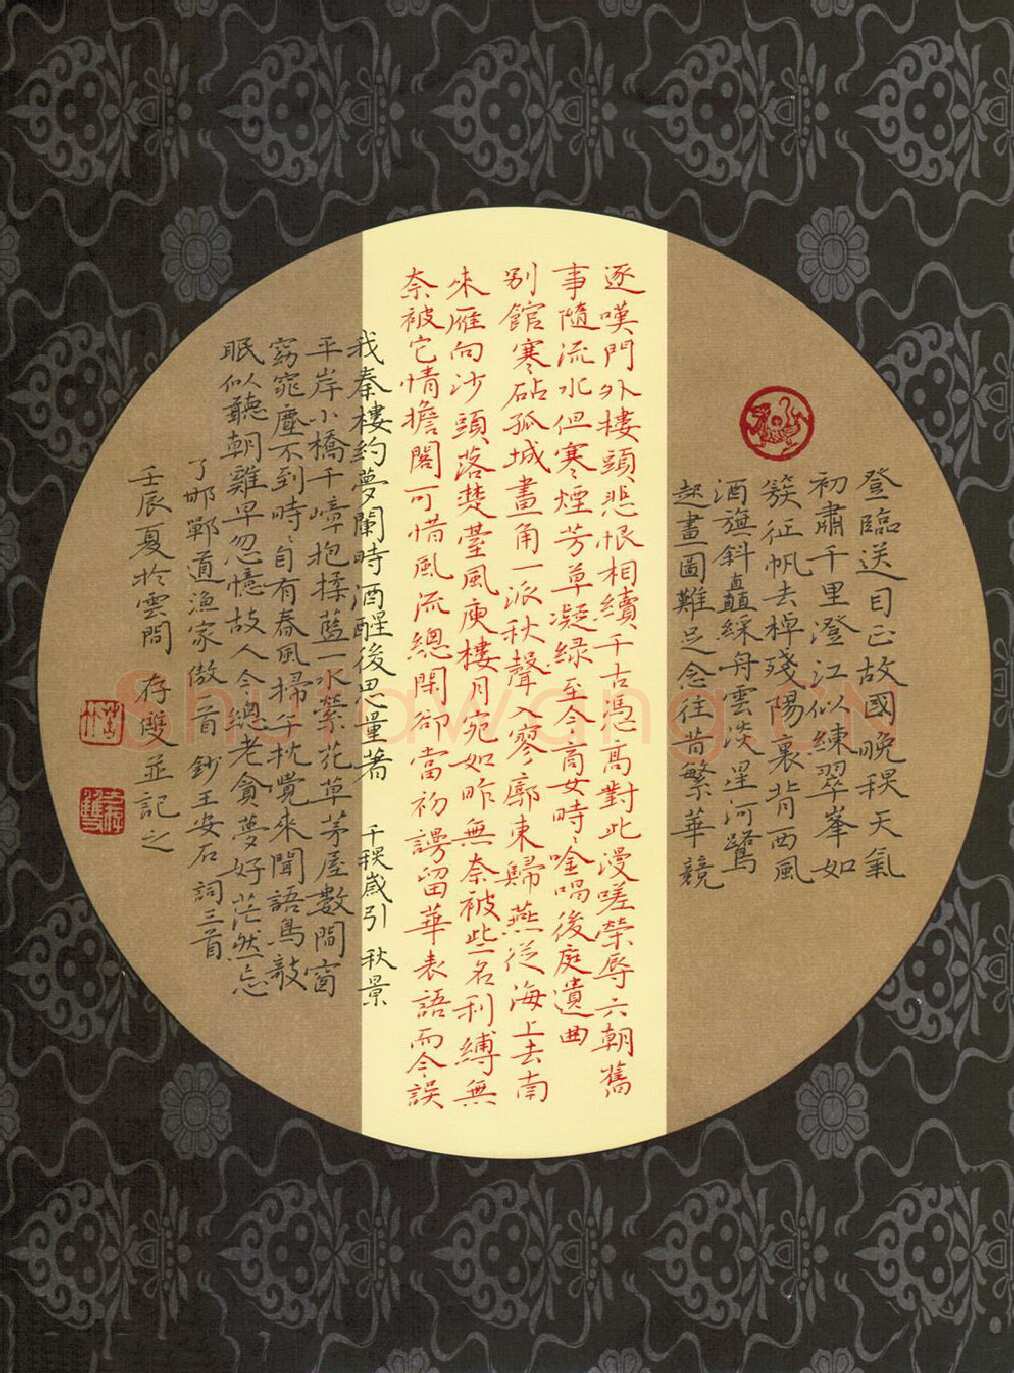 登臨送目正故國晚秋天氣
初肅千里澄江似練翠峯如
簇征帆去棹殘陽裏背西風
酒旗斜矗綵舟雲淡星河鷺
起畫圖難足念往昔繁華競
逐嘆門外樓頭悲恨相續千古憑高對此漫嗟榮辱六朝舊
事隨流水但寒煙芳草凝綠至今商女時時唫唱後庭遺曲
別館寒砧孤城畫角一派秋聲入寥廓東歸燕從海上去南
來雁向沙頭落楚臺風庾樓月宛如昨無奈被些名利縛無
奈被它情擔閣可惜風流總閑卻當初謾留華表語而今誤
我秦樓約夢闌時酒醒後思量著 千秋歲引 秋景
平岸小橋千嶂抱揉藍一水縈花草茅屋數間窗
窈窕塵不到時時自有春風掃午枕覺來聞語鳥欹
眠似聽朝雞早忽憶故人今總老貪夢好茫然忘
了邯鄲道漁家傲首 鈔王安石詞三首
壬辰夏於雲間 存雙並記之
Shufawang.CN